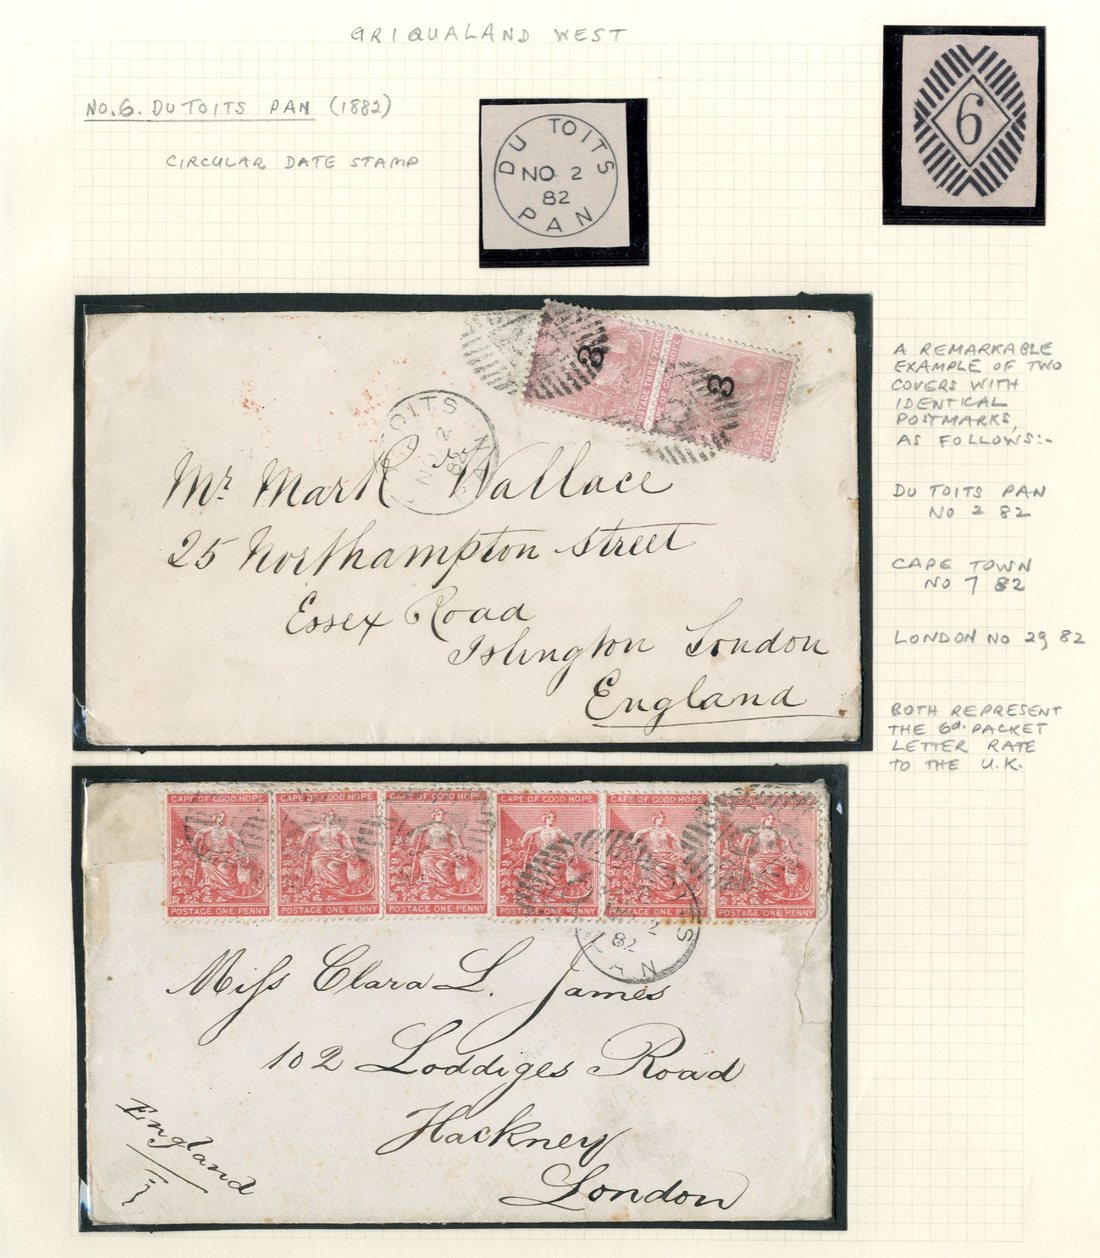 GRIQUALAND WEST
NO. 6. DU TOITS PAN (1882)
CIRCULAR DATE STAMP
DU TOITS
NO 2
82
PAN
6
3
3
POSTAGE THREE PENCE
CAPE OF GOOD HOPE
POSTAGE THREE PENCE
TOITS
NO 2
82
PAN
Mr Mark Wallace
25 Northampton Street
Essex Road
Islington London
England
A REMARKABLE
EXAMPLE OF TWO
COVERS WITH
IDENTICAL
POSTMARKS,
AS FOLLOWS:-
DU TOITS PAN
NO 2 82
CAPE TOWN
NO 7 82
LONDON NO 29 82
BOTH REPRESENT
THE 6d. PACKET
LETTER RATE
TO THE U.K.
CAPE OF GOOD HOPE CAPE OF GOOD HOPE CAPE OF GOOD HOPE CAPE OF GOOD HOPE CAPE OF GOOD HOPE
POSTAGE ONE PENNY POSTAGE ONE PENNY POSTAGE ONE PENNY POSTAGE ONE PENNY POSTAGE ONE PENNY POSTAGE ONE PENNY
2
82
PAN
Miss Clara L. James
102 Loddiges Road
Hackney
London
England